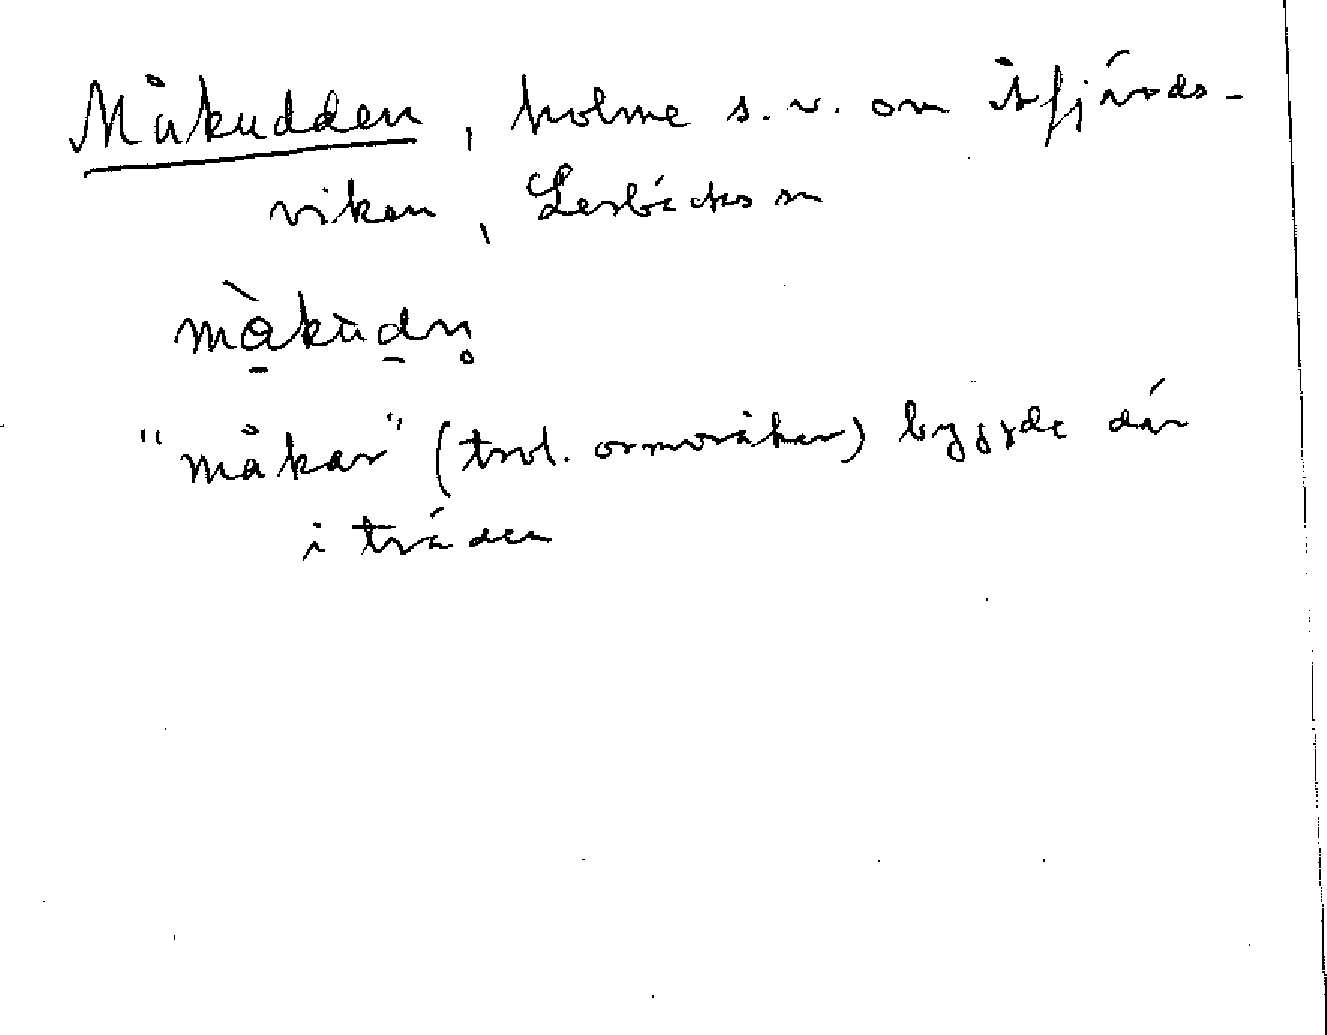 Måkudden, holme s.v. om Åfjärds-
viken, Lerbäcks sn
mákùdn̥
"måkar" (trol. ormvråkar) byggde där
i träden